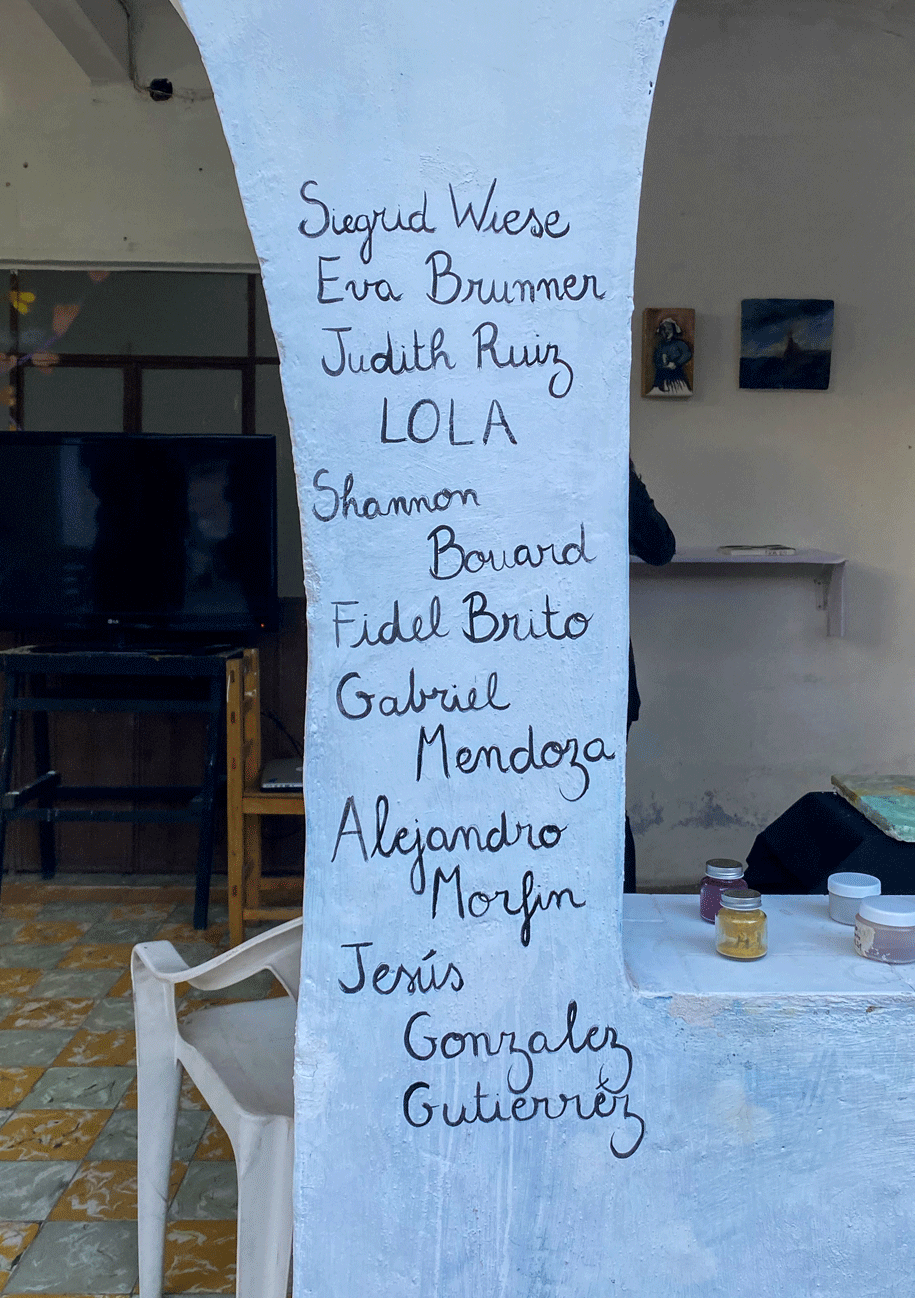 Siegrid Wiese
Eva Brunner
Judith Ruiz
LOLA
Shannon
Bouard
Fidel Brito
Gabriel
Mendoza
Alejandro
Morfin
Jesús
Gonzalez
Gutierréz
LG